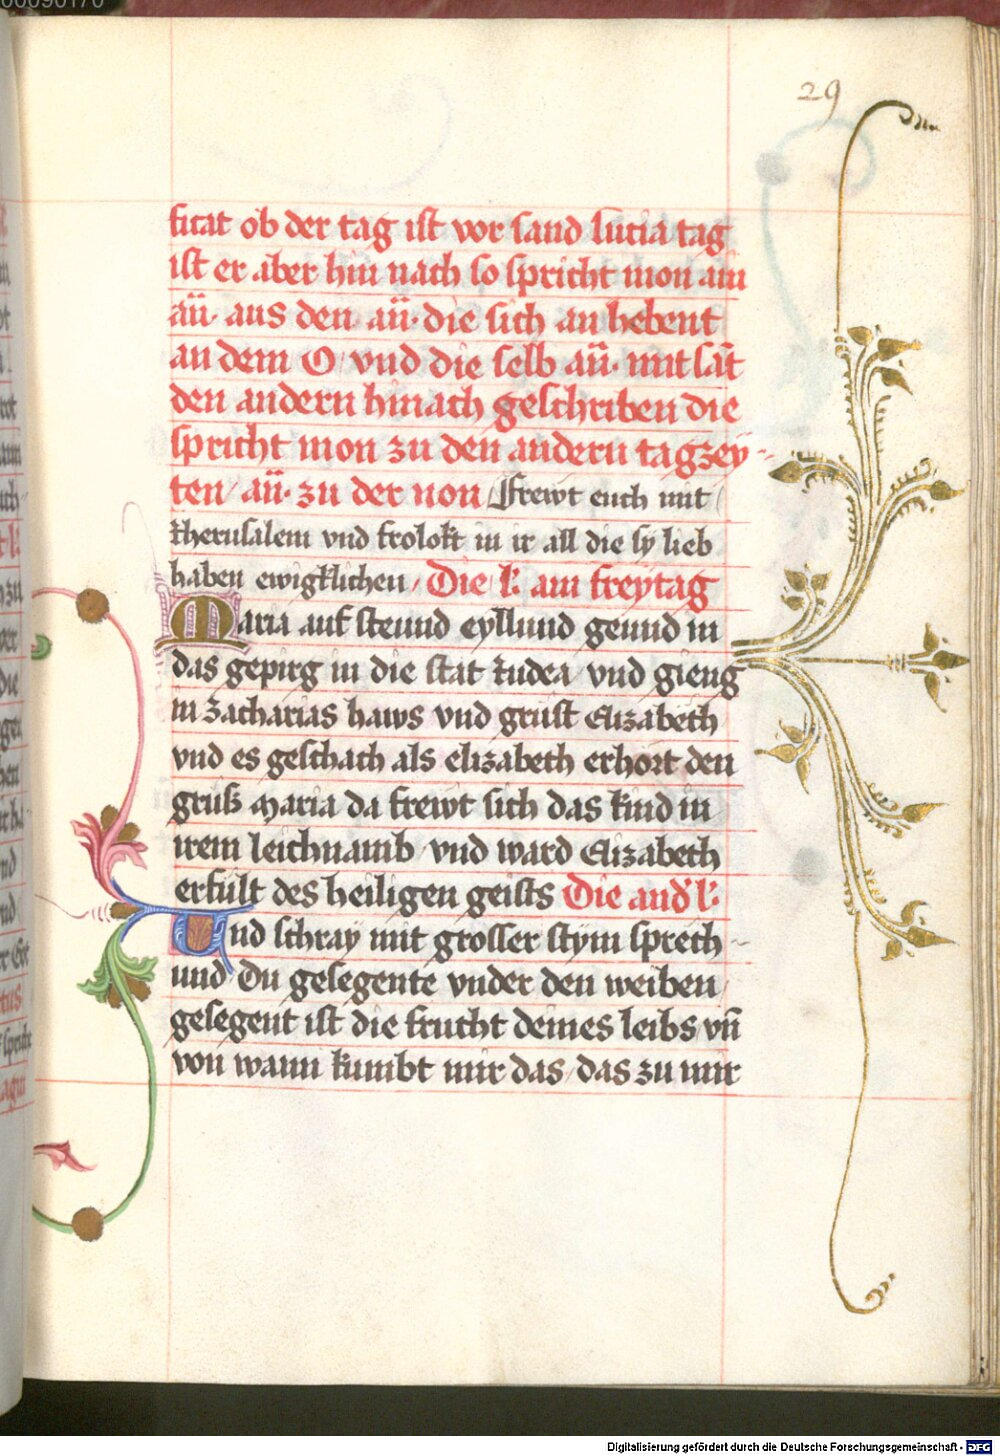 29
ficat ob der tag ist vor sand lucia tag
ist er aber hin nach so spricht mon ain
añ. aus den añ. die sich an hebent
an dem O / vnd die selb añ. mit sāt
den andern hinach geschriben die
spricht mon zu den andern tagzey-
ten / añ. zu der non / Frewt euch mit
Jherusalem vnd frolokt in ir all die sy lieb
haben ewigklichen / Die l: am freytag
Maria auf steund eyllund geund in
das gepirg in die stat Judea / vnd gieng
in Zacharias haws vnd grüst Elizabeth
vnd es geschach als elizabeth erhort den
gruß maria da frewt sich das kind in
irem leichnamb / vnd ward Elizabeth
erfült des heiligen geists Die and' l:
Und schray mit grosser stym sprech-
und / Du gesegente vnder den weiben
gesegent ist die frucht deines leibs vñ
von wann kumbt mir das / das zu mir
Digitalisierung gefördert durch die Deutsche Forschungsgemeinschaft - DFG